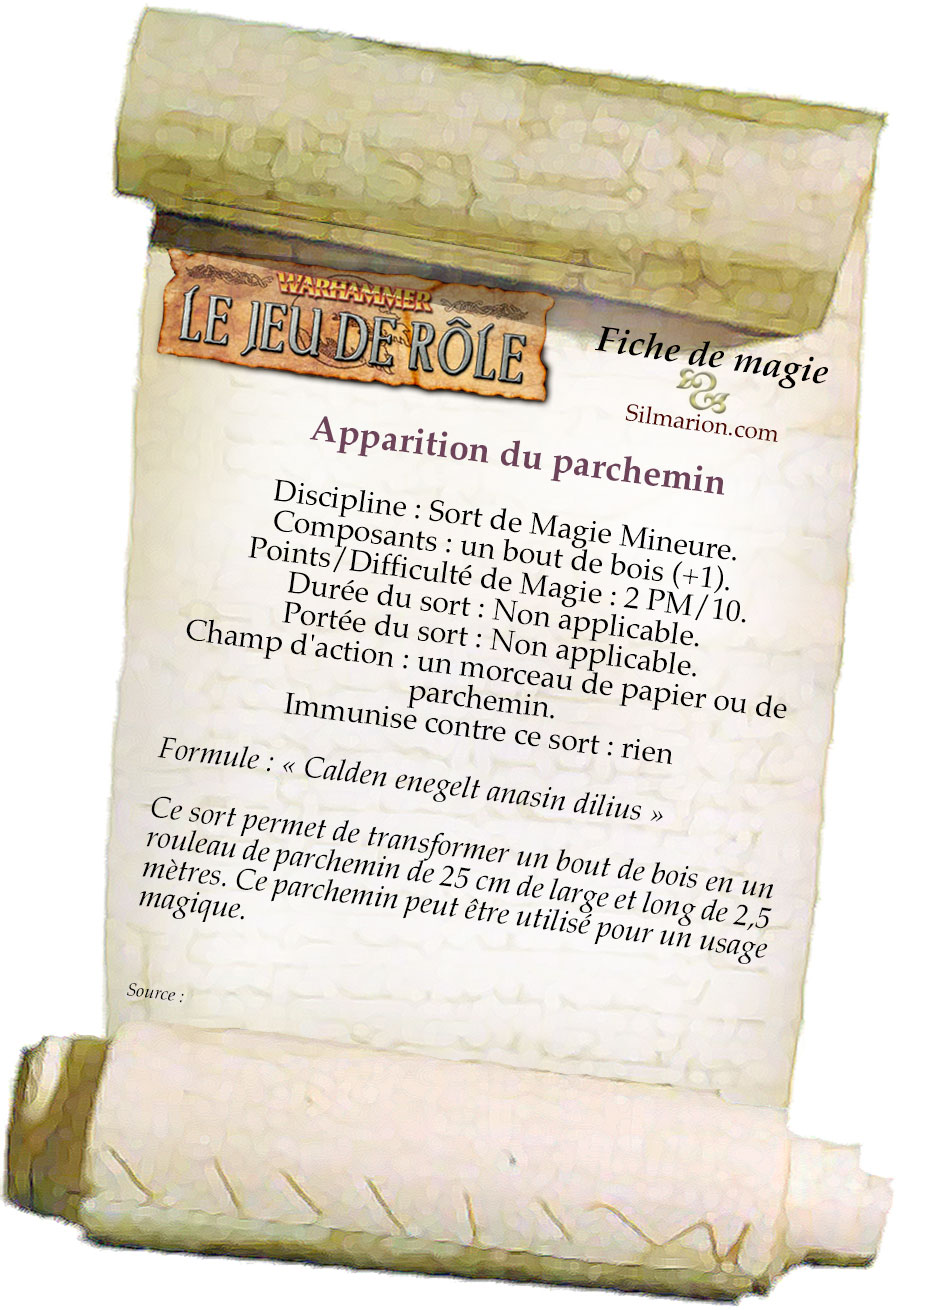 WARHAMMER
LE JEU DE RÔLE
Fiche de magie
Silmarion.com
Apparition du parchemin
Discipline : Sort de Magie Mineure.
Composants : un bout de bois (+1).
Points/Difficulté de Magie : 2 PM/10.
Durée du sort : Non applicable.
Portée du sort : Non applicable.
Champ d'action : un morceau de papier ou de
parchemin.
Immunise contre ce sort : rien
Formule : « Calden enegelt anasin dilius »
Ce sort permet de transformer un bout de bois en un
rouleau de parchemin de 25 cm de large et long de 2,5
mètres. Ce parchemin peut être utilisé pour un usage
magique.
Source :